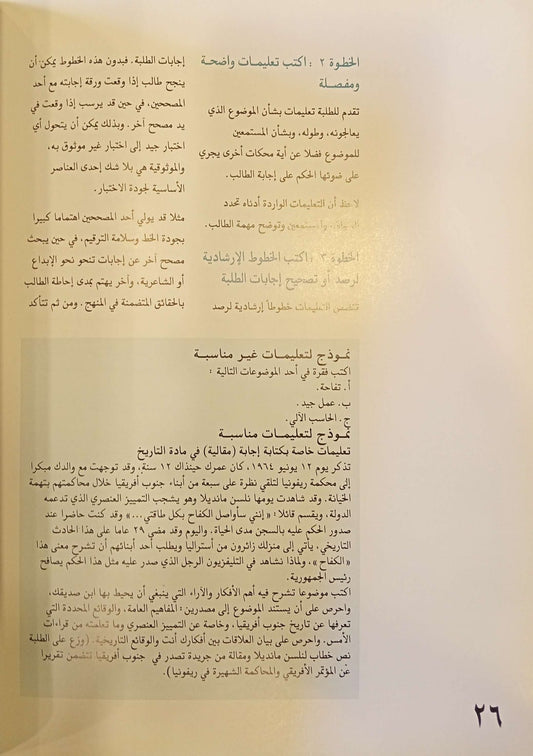 الخطوة ٢ : اكتب تعليمات واضحة
ومفصلة
تقدم للطلبة تعليمات بشأن الموضوع الذي
يعالجونه، وطوله، وبشأن المستمعين
للموضوع فضلا عن أية محكات أخرى يجري
على ضوئها الحكم على إجابة الطالب.
لاحظ أن التعليمات الواردة أدناه تحدد
والمستمعين وتوضح مهمة الطالب.
الخطوة ٣ : اكتب الخطوط الإرشادية
لرصد أو تصحيح إجابات الطلبة
تتضمن التعليمات خطوطاً إرشادية لرصد
إجابات الطلبة. فبدون هذه الخطوط يمكن أن
ينجح طالب إذا وقعت ورقة إجابته مع أحد
المصححين، في حين قد يرسب إذا وقعت في
يد مصحح آخر. وبذلك يمكن أن يتحول أي
اختبار جيد إلى اختبار غير موثوق به،
والموثوقية هي بلا شك إحدى العناصر
الأساسية لجودة الاختبار.
مثلا قد يولي أحد المصححين اهتماما كبيرا
بجودة الخط وسلامة الترقيم، في حين يبحث
مصحح آخر عن إجابات تنحو نحو الإبداع
أو الشاعرية، وآخر يهتم بمدى إحاطة الطالب
بالحقائق المتضمنة في المنهج. ومن ثم تتأكد
نموذج لتعليمات غير مناسبة
اكتب فقرة في أحد الموضوعات التالية :
أ. تفاحة.
ب. عمل جيد.
ج. الحاسب الآلي.
نموذج لتعليمات مناسبة
تعليمات خاصة بكتابة إجابة (مقالية) في مادة التاريخ
تذكر يوم ١٢ يونيو ١٩٦٤، كان عمرك حينذاك ١٢ سنة، وقد توجهت مع والدك مبكرا
إلى محكمة ريفونيا لتلقي نظرة على سبعة من أبناء جنوب أفريقيا خلال محاكمتهم بتهمة
الخيانة. وقد شاهدت يومها نلسن مانديلا وهو يشجب التمييز العنصري الذي تدعمه
الدولة، ويقسم قائلا: «إنني سأواصل الكفاح بكل طاقتي...» وقد كنت حاضرا عند
صدور الحكم عليه بالسجن مدى الحياة. واليوم وقد مضى ٢٩ عاما على هذا الحادث
التاريخي. يأتي إلى منزلك زائرون من أستراليا ويطلب أحد أبنائهم أن تشرح معنى هذا
«الكفاح»، ولماذا نشاهد في التليفزيون الرجل الذي صدر عليه مثل هذا الحكم يصافح
رئيس الجمهورية.
اكتب موضوعا تشرح فيه أهم الأفكار والآراء التي ينبغي أن يحيط بها ابن صديقك،
واحرص على أن يستند الموضوع إلى مصدرين: المفاهيم العامة، والوقائع المحددة التي
تعرفها عن تاريخ جنوب أفريقيا، وخاصة عن التمييز العنصري وما تعلمته من قراءات
الأمس. واحرص على بيان العلاقات بين أفكارك أنت والوقائع التاريخية. (وزع على الطلبة
نص خطاب لنلسن مانديلا ومقالة من جريدة تصدر في جنوب أفريقيا تتضمن تقريرا
عن المؤتمر الأفريقي والمحاكمة الشهيرة في ريفونيا).
٢٦